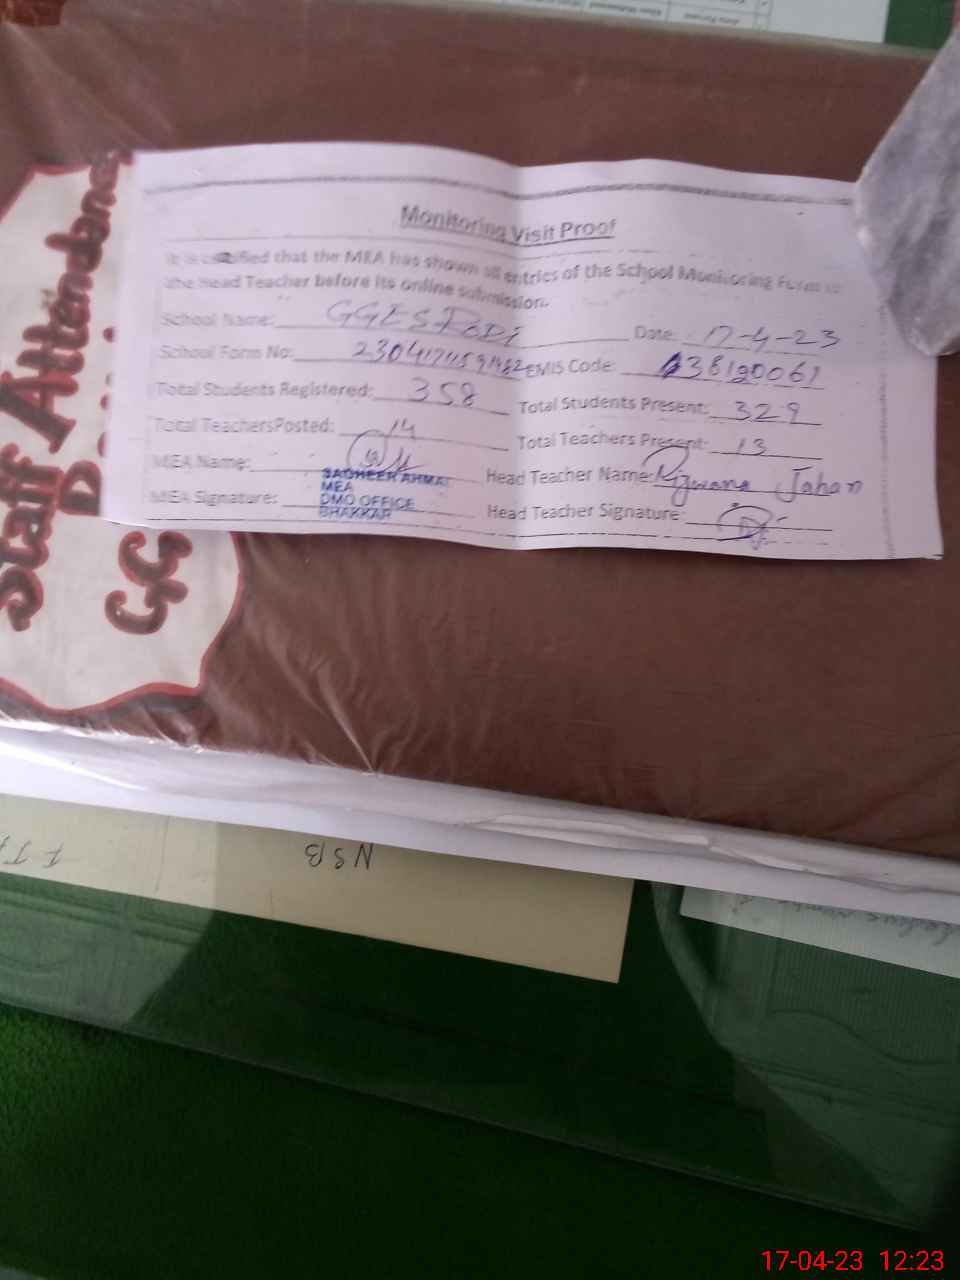 Monitoring Visit Proof
It is certified that the MEA has shown all entries of the School Monitoring Form to
the Head Teacher before its online submission.
School Name: GGES Date: 17-4-23
School Form No: EMIS Code: 38120061
Total Students Registered: 358 Total Students Present: 329
Total TeachersPosted: 14 Total Teachers Present: 13
MEA Name: Head Teacher Name: Rizwana Jahan
MEA Signature: Head Teacher Signature:
SAGHEER AHMAD
MEA
DMO OFFICE
BHAKKAR
Staff Attendance
GG
NSB
17-04-23 12:23